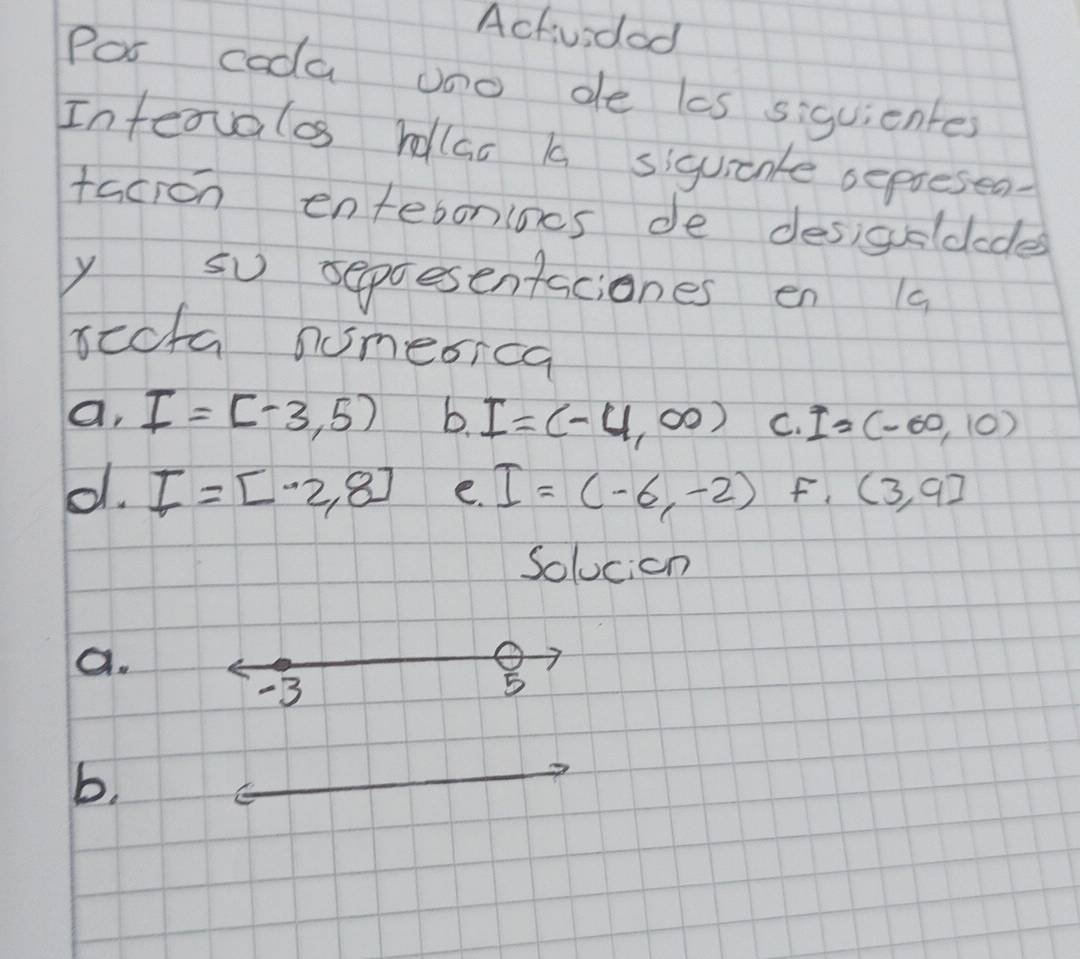 Actividad
Por cada uno de los siguientes
Intervalos hallar la siguiente represen-
tación enterbonines de desigualdades
y su representaciones en la
recta númerica
a. I = [-3, 5) b. I = (-4, ∞) c. I = (-∞, 10)
d. I = [-2, 8] e. I = (-6, -2) F. (3, 9]
Solucion
a.
-3 5
b.